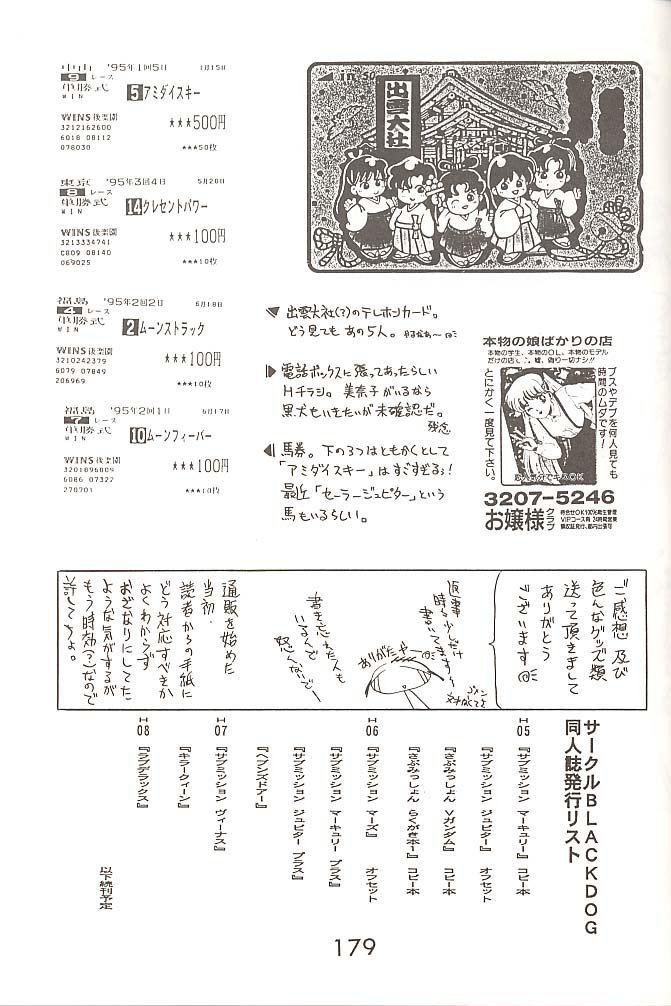 中山 '95年1回5日 1月15日
9 レース
単勝式 5 アミダイスキー
WIN
WINS後楽園 ★★★500円
3212162600
6018 08112
078030 ★★★50枚
東京 '95年3回4日 5月28日
8 レース
単勝式 14 クレセントパワー
WIN
WINS後楽園 ★★★100円
3213334741
C809 08140
069025 ★★★10枚
福島 '95年2回2日 6月18日
4 レース
単勝式 2 ムーンストラック
WIN
WINS後楽園 ★★★100円
3210242379
6079 07849
206969 ★★★10枚
福島 '95年2回1日 6月17日
7 レース
単勝式 10 ムーンフィーバー
WIN
WINS後楽園 ★★★100円
3201896809
6086 07322
270701 ★★★10枚
50
出雲大社
出雲大社(?)のテレホンカード。
どう見てもあの5人。
電話ボックスに張ってあったらしい
Hチラシ。美奈子がいるなら
黒犬もいきたいが未確認だ。
残念
馬券。下の3つはともかくとして
「アミダイスキー」はすごすぎるぅ!
最近「セーラージュピター」という
馬もいるらしい。
本物の娘ばかりの店
本物の学生、本物のOL、本物のモデル
だけの店で、嘘、偽り一切ナシ!!
ブスやデブを何人見ても
時間のムダです!
とにかく一度見て下さい。
恋人気分でキスOK
3207-5246
お嬢様クラブ
待合せOK100%衛生管理
VIPコース有 24時間営業
領収証発行、都内出張可
ご感想 及び
色んなグッズ類
送って頂きまして
ありがとう
ございます
返事
時々少しだけ
書いてますけど
ありがたや
書き忘れた人も
いるんで
怒んないでー
通販を始めた
当初、
読者からの手紙に
どう対応すべきか
よくわからず
おざなりにしてた
ような気がするが
もう時効(?)なので
許してちょ。
サークルBLACKDOG
同人誌発行リスト
H05 『サブミッション マーキュリー』 コピー本
『サブミッション ジュピター』 オフセット
『さぶみっしょん Vガンダム』 コピー本
『さぶみっしょん らくがき本1』 コピー本
H06 『サブミッション マーズ』 オフセット
『サブミッション マーキュリー プラス』
『サブミッション ジュピター プラス』
『ヘブンズドアー』
H07 『サブミッション ヴィーナス』
『キラークィーン』
H08 『ラブデラックス』
以下続刊予定
179